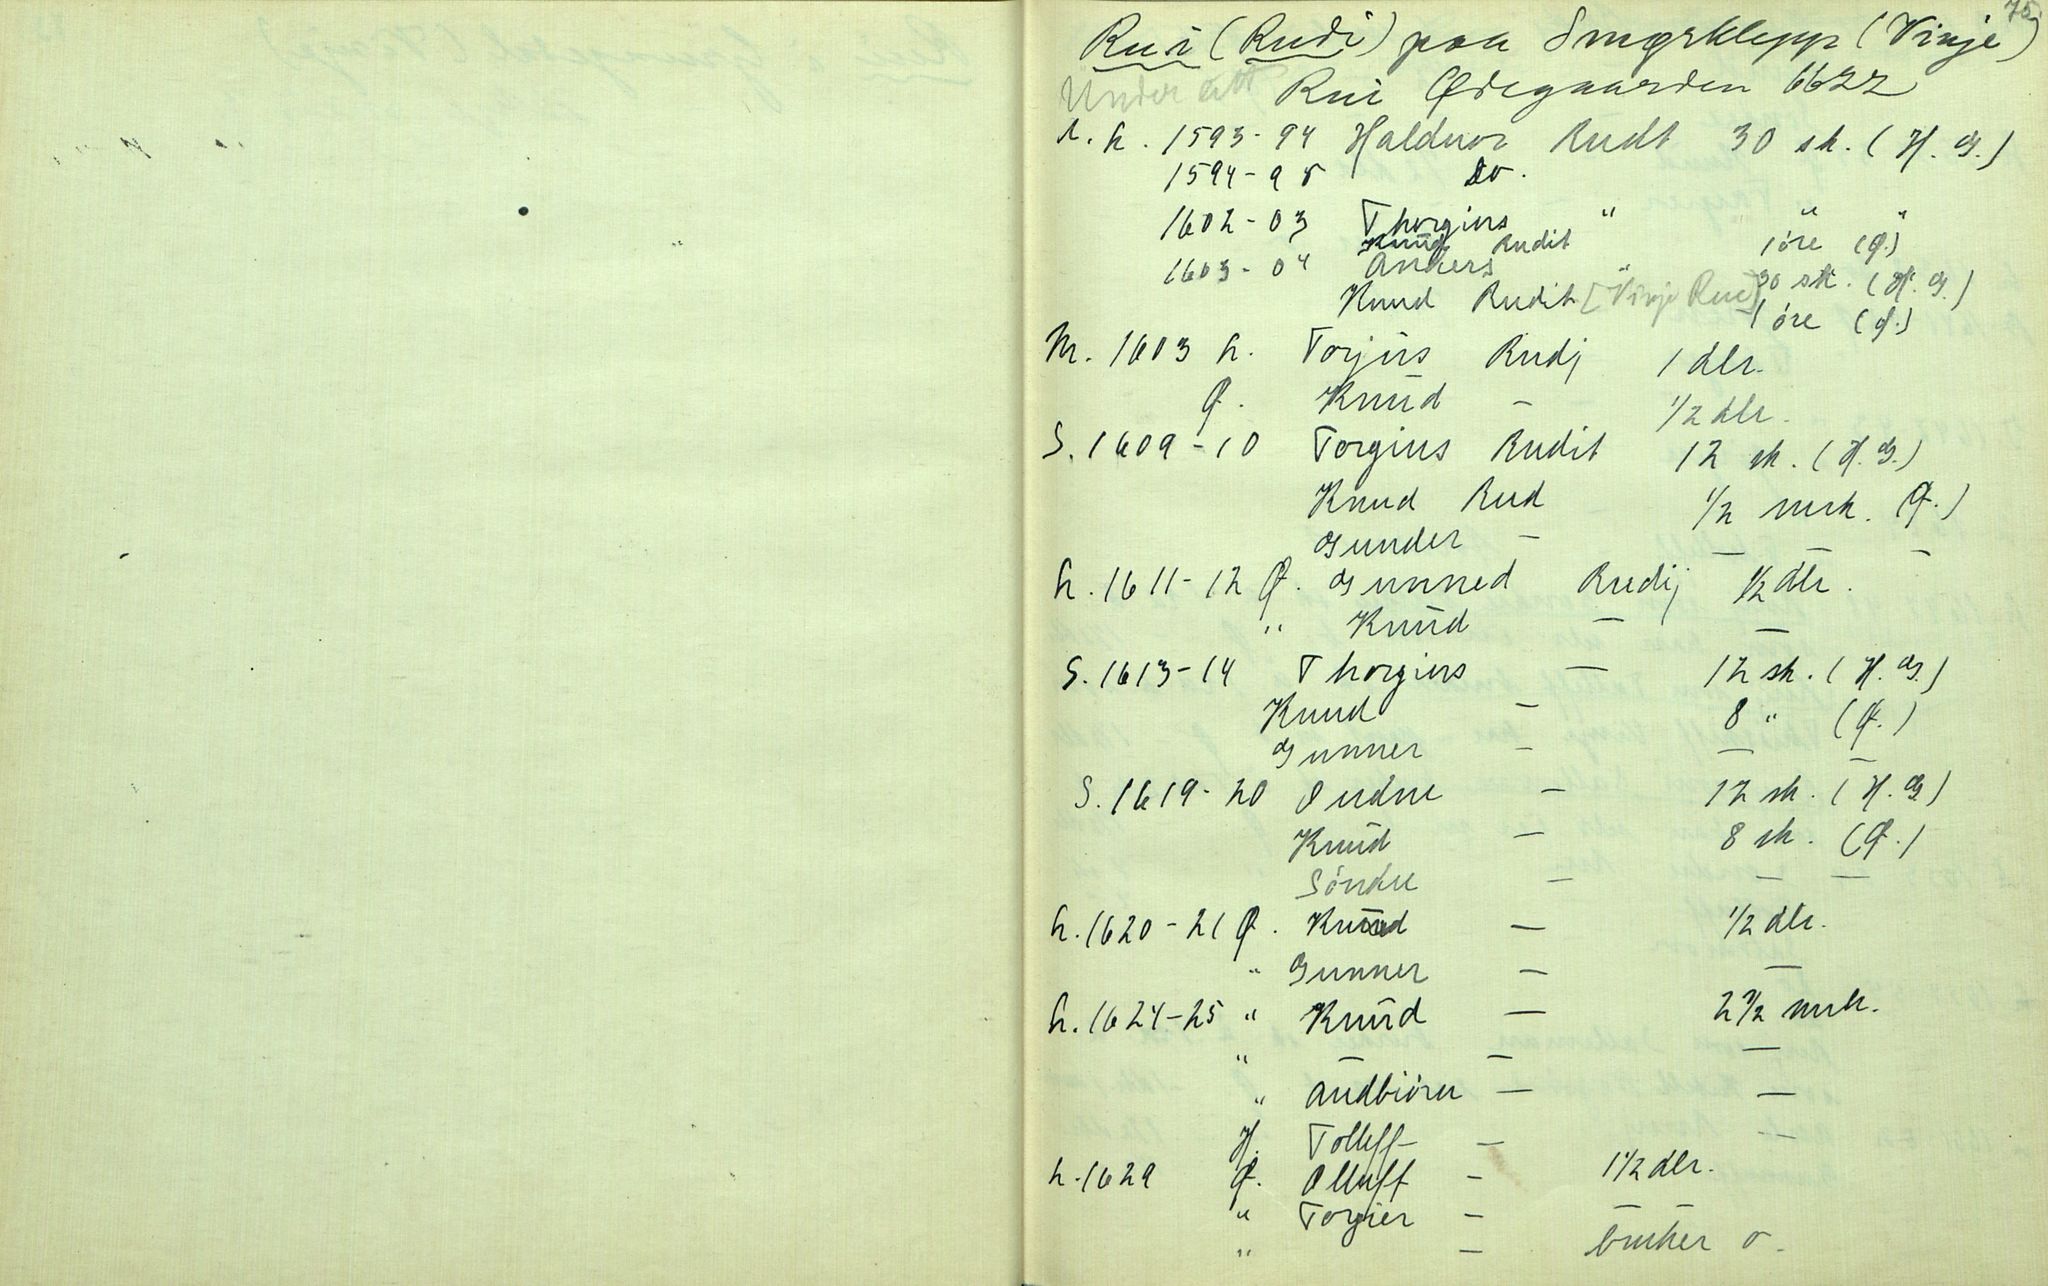 75
Rui (Rudi) paa Smørklepp (Vinje)
Under ett Rui Ødegaarden 6622
L. h. 1593-94 Halduor Rudt 30 sk. (H. G.)
1594-95 Do.
1602-03 Thorgius " " "
Knud Rudit 1 öre (Ø.)
1603-04 Anders " 30 sk. (H. G.)
Knud Rudit [Vinje Rue] 1 öre (Ø.)
M. 1603 h. Torjus Rudj 1 dlr.
Ø. Knŭd — 1/2 dlr.
S. 1609-10 Torgius Rudit 12 sk. (H. G.)
Knud Rud 1/2 mrk. (Ø.)
Gunder — — — —
h. 1611-12 Ø. Gunned Rudij 1/2 dlr.
" Knŭd — —
S. 1613-14 Thorgius — 12 sk. (H. G.)
Knud — 8 " (Ø.)
Gunner — — —
S. 1619-20 Oudne — 12 sk. (H. G.)
Knŭd — 8 sk. (Ø.)
Söndre — — —
h. 1620-21 Ø. Knŭd — 1/2 dlr.
" Gunner — —
h. 1624-25 " Knŭd — 2 1/2 mrk.
" — — —
" Audbiörn — —
H. Tolleff —
h. 1629 Ø. Olluff — 1 1/2 dlr.
" Torgier — — —
" — bruker o.